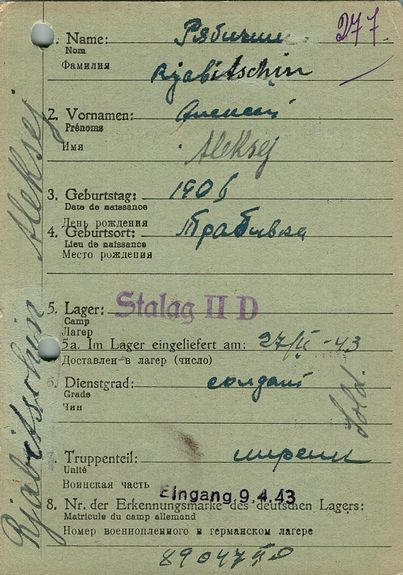 277.
1. Name: Рябичин
Nom
Фамилия
Rjabitschin
2. Vornamen: Алексей
Prénoms
Имя
Aleksej
3. Geburtstag: 1906
Date de naissance
День рождения
4. Geburtsort:
Lieu de naissance
Место рождения
5. Lager: Stalag II D
Camp
Лагерь
5a. Im Lager eingeliefert am: 27/II-43
Доставлен в лагерь (число)
6. Dienstgrad: солдат
Grade
Чин
Sold.
7. Truppenteil:
Unité
Воинская часть
Eingang 9.4.43
8. Nr. der Erkennungsmarke des deutschen Lagers:
Matricule du camp allemand
Номер военнопленного в германском лагере
Rjabitschin Aleksej